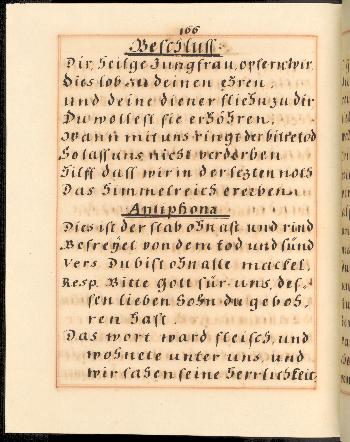 166
Beschluss.
Dir, heilge Jungfrau, opfern wir
Dies lob zu deinen ehren,
und deine diener fliehn zu dir
Du wollest sie erhören,
Wann mit uns ringt der bitre tod
So lass uns nicht verdorben
Hilff dass wir in der lezten noth
Das himmelreich ererben.
Antiphona.
Dies ist der stab ohn ast und rind
Befreyet von dem tod und sünd
Vers. Du bist ohn alle mackel,
Resp. Bitte Gott für uns, des-
sen lieben Sohn du geboh,
ren hast.
Das wort ward fleisch, und
wohnete unter uns, und
wir sahen seine herrlichkeit,